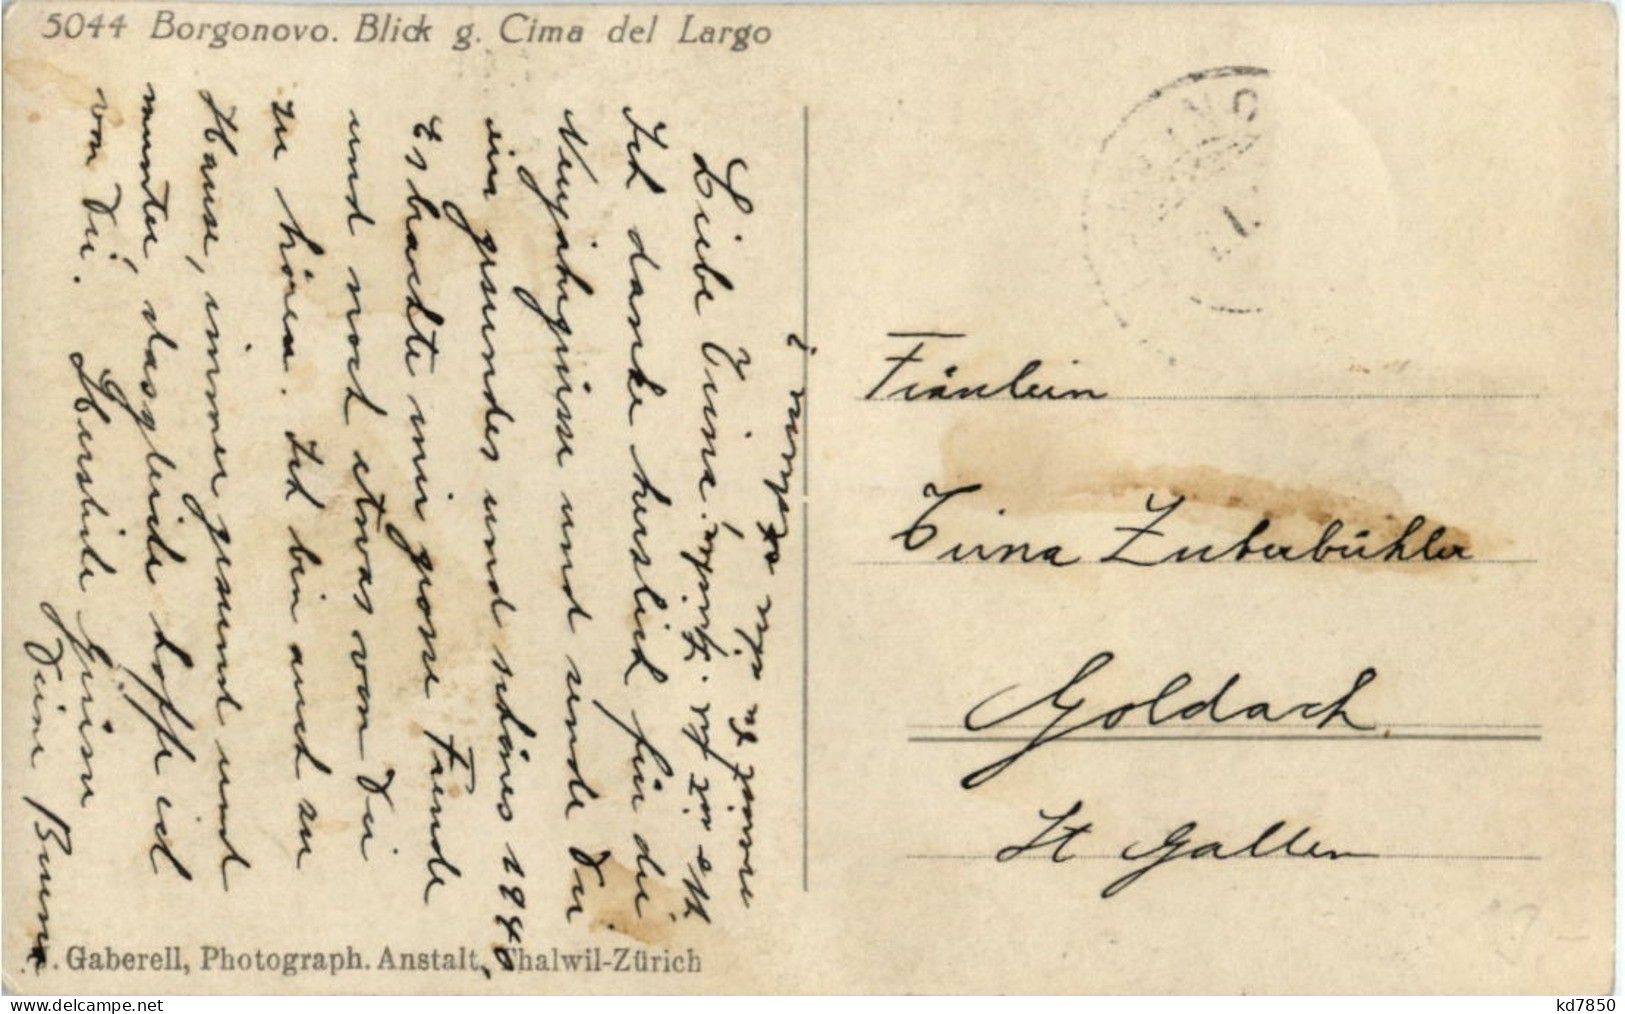 5044 Borgonovo. Blick g. Cima del Largo
Liebe Tina.
Ich danke herzlich für die
Neujahrgrüsse und sende Dir
ein gesundes und schönes 1940
Es brachte mir grosse Freude
und noch etwas von Dir
zu hören. Ich bin auch zu
Hause, immer gesund und
munter, dasgleiche hoffe ich
von Dir. Herzliche Grüsse
Deine
Fräulein
Tina Zuberbühler
Goldach
St Gallen
. Gaberell, Photograph. Anstalt, Thalwil-Zürich
kd7850